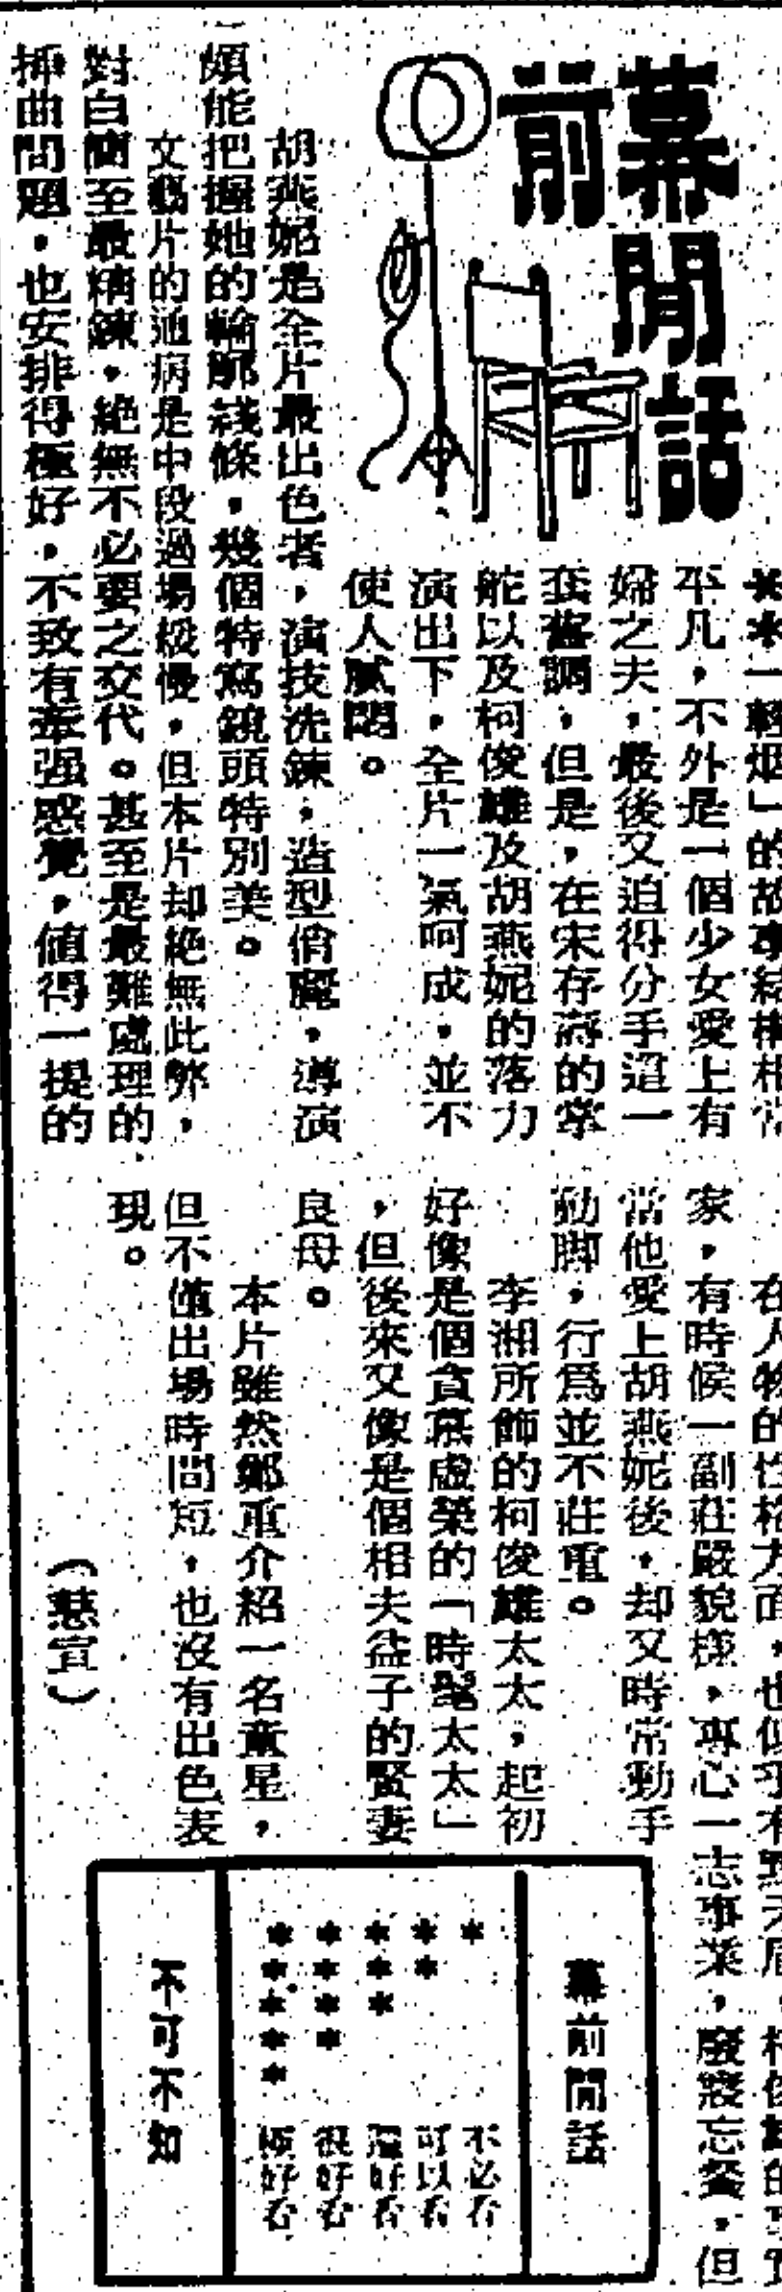 幕前閒話
一輕烟」的故事結構相當
平凡，不外是一個少女愛上有
婦之夫，最後又迫得分手這一
套舊調，但是，在宋存壽的掌
舵以及柯俊雄及胡燕妮的落力
演出下，全片一氣呵成，並不
使人膩悶。
胡燕妮是全片最出色者，演技洗鍊，造型俏麗，導演
頗能把握她的輪廓綫條，幾個特寫鏡頭特別美。
文藝片的通病是中段過場緩慢，但本片却絕無此弊，
對白簡至最精鍊，絕無不必要之交代。甚至是最難處理的
揷曲問題，也安排得極好，不致有牽强感覺，値得一提的
在人物的性格方面，也似乎有點矛盾，柯俊雄的
家，有時候一副莊嚴貌樣，專心一志事業，廢寢忘餐，但
當他愛上胡燕妮後，却又時常動手
動脚，行爲並不莊重。
李湘所飾的柯俊雄太太，起初
好像是個貪慕虛榮的「時髦太太」
，但後來又像是個相夫益子的賢妻
良母。
本片雖然鄭重介紹一名童星，
但不僅出場時間短，也沒有出色表
現。
（慧宣）
幕前閒話
* 不必看
** 可以看
*** 還好看
**** 很好看
***** 極好看
不可不知